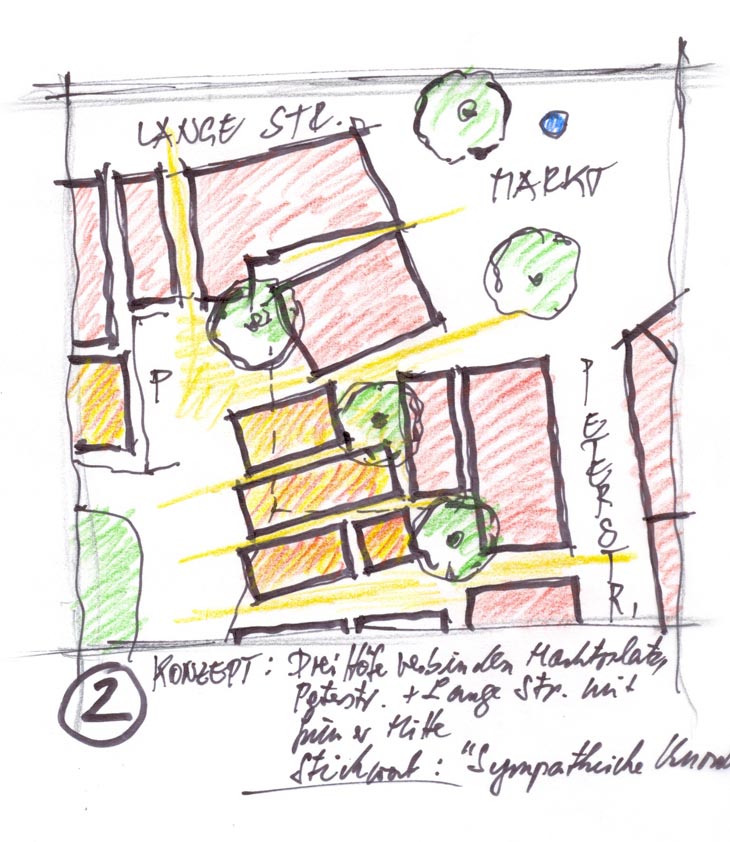 LANGE STR.
MARKT
P
PETERSTR.
2
KONZEPT: Drei Höfe verbinden Marktplatz,
Peterstr. + Lange Str. mit
Mitte
Stichwort: "Sympathische